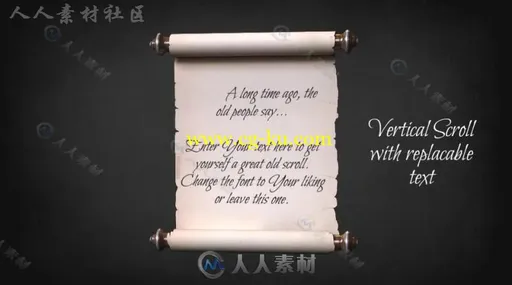 人人素材社区
A long time ago, the
old people say...
Enter Your text here to get
yourself a great old scroll.
Change the font to Your liking
or leave this one.
Vertical Scroll
with replacable
text
人人素材